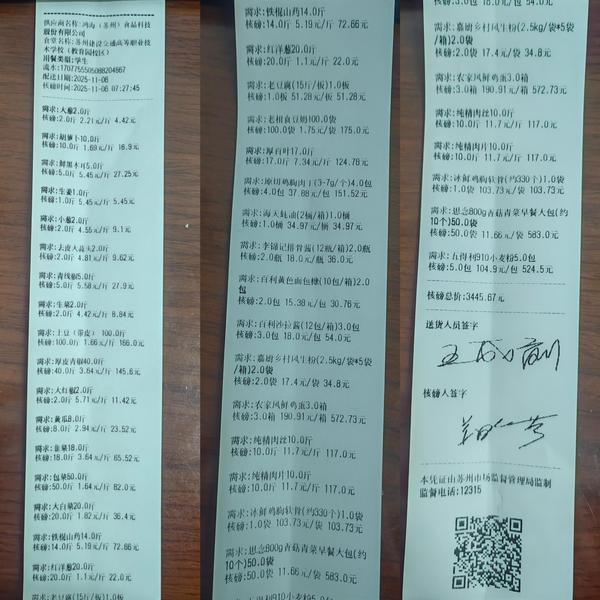 供应商名称:鸿海(苏州)食品科技
股份有限公司
食堂名称:苏州建设交通高等职业技
术学校(教育园校区)
用餐类型:学生
流水:1707755505088204667
配送日期:2025-11-06
核磅时间:2025-11-06 07:27:45
需求:大葱2.0斤
核磅:2.0斤 2.21元/斤 4.42元
需求:胡萝卜10.0斤
核磅:10.0斤 1.69元/斤 16.9元
需求:鲜黑木耳5.0斤
核磅:5.0斤 5.45元/斤 27.25元
需求:生姜1.0斤
核磅:1.0斤 5.45元/斤 5.45元
需求:小葱2.0斤
核磅:2.0斤 4.55元/斤 9.1元
需求:去皮大蒜头2.0斤
核磅:2.0斤 4.81元/斤 9.62元
需求:青线椒5.0斤
核磅:5.0斤 5.58元/斤 27.9元
需求:生菜2.0斤
核磅:2.0斤 4.42元/斤 8.84元
需求:土豆(带皮)100.0斤
核磅:100.0斤 1.66元/斤 166.0元
需求:厚皮青椒40.0斤
核磅:40.0斤 3.64元/斤 145.6元
需求:大红椒2.0斤
核磅:2.0斤 5.71元/斤 11.42元
需求:黄瓜8.0斤
核磅:8.0斤 2.94元/斤 23.52元
需求:韭菜18.0斤
核磅:18.0斤 3.64元/斤 65.52元
需求:包菜50.0斤
核磅:50.0斤 1.64元/斤 82.0元
需求:大白菜20.0斤
核磅:20.0斤 1.82元/斤 36.4元
需求:铁棍山药14.0斤
核磅:14.0斤 5.19元/斤 72.66元
需求:红洋葱20.0斤
核磅:20.0斤 1.1元/斤 22.0元
需求:老豆腐(15斤/板)1.0板
需求:铁棍山药14.0斤
核磅:14.0斤 5.19元/斤 72.66元
需求:红洋葱20.0斤
核磅:20.0斤 1.1元/斤 22.0元
需求:老豆腐(15斤/板)1.0板
核磅:1.0板 51.28元/板 51.28元
需求:老相食豆奶100.0袋
核磅:100.0袋 1.75元/袋 175.0元
需求:厚百叶17.0斤
核磅:17.0斤 7.34元/斤 124.78元
需求:原切鸡胸肉丁(3-7g/个)4.0包
核磅:4.0包 37.88元/包 151.52元
需求:海天蚝油(2桶/箱)1.0桶
核磅:1.0桶 34.97元/桶 34.97元
需求:李锦记排骨酱(12瓶/箱)2.0瓶
核磅:2.0瓶 18.0元/瓶 36.0元
需求:百利黄色面包糠(10包/箱)2.0
包
核磅:2.0包 15.38元/包 30.76元
需求:百利沙拉酱(12包/箱)3.0包
核磅:3.0包 18.0元/包 54.0元
需求:嘉厨乡村风生粉(2.5kg/袋*5袋
/箱)2.0袋
核磅:2.0袋 17.4元/袋 34.8元
需求:农家风鲜鸡蛋3.0箱
核磅:3.0箱 190.91元/箱 572.73元
需求:纯精肉丝10.0斤
核磅:10.0斤 11.7元/斤 117.0元
需求:纯精肉片10.0斤
核磅:10.0斤 11.7元/斤 117.0元
需求:冰鲜鸡胸软骨(约330个)1.0袋
核磅:1.0袋 103.73元/袋 103.73元
需求:思念800g香菇青菜早餐大包(约
10个)50.0袋
核磅:50.0袋 11.66元/袋 583.0元
需求:五得利910小麦粉5.0包
核磅:3.0包 18.0元/包 54.0元
需求:嘉厨乡村风生粉(2.5kg/袋*5袋
/箱)2.0袋
核磅:2.0袋 17.4元/袋 34.8元
需求:农家风鲜鸡蛋3.0箱
核磅:3.0箱 190.91元/箱 572.73元
需求:纯精肉丝10.0斤
核磅:10.0斤 11.7元/斤 117.0元
需求:纯精肉片10.0斤
核磅:10.0斤 11.7元/斤 117.0元
需求:冰鲜鸡胸软骨(约330个)1.0袋
核磅:1.0袋 103.73元/袋 103.73元
需求:思念800g香菇青菜早餐大包(约
10个)50.0袋
核磅:50.0袋 11.66元/袋 583.0元
需求:五得利910小麦粉5.0包
核磅:5.0包 104.9元/包 524.5元
核磅总价:3445.67元
送货人员签字
核磅人签字
本凭证由苏州市场监督管理局监制
监督电话:12315